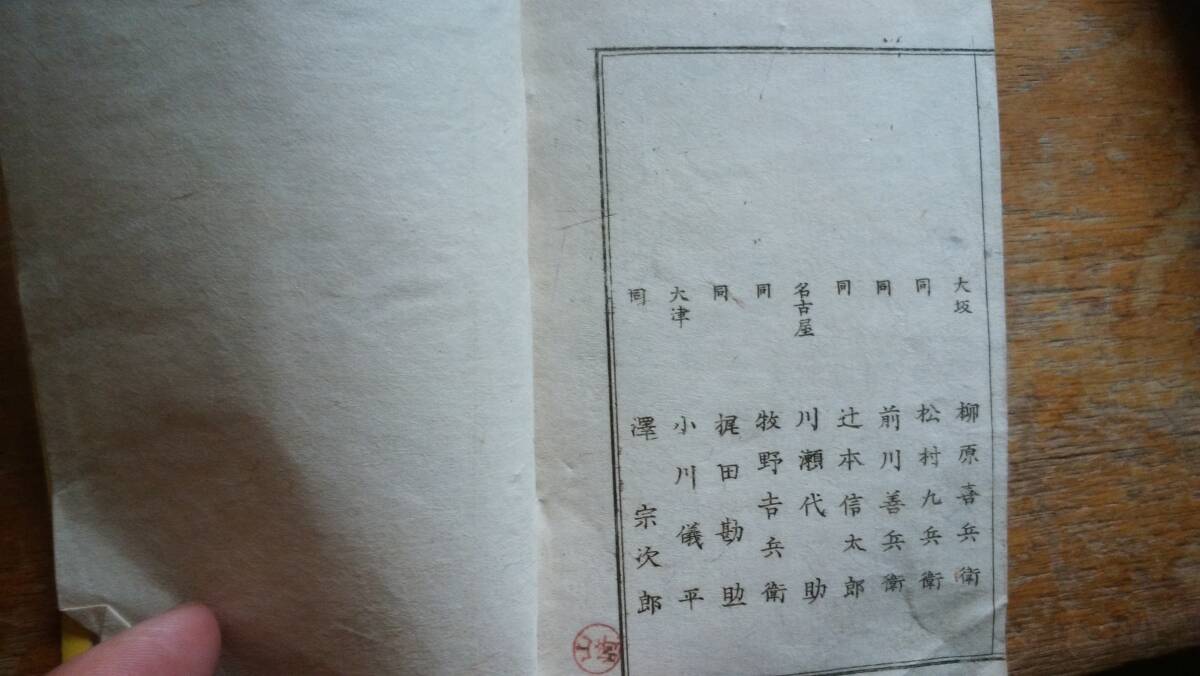 大坂 柳原喜兵衛
同 松村九兵衛
同 前川善兵衛
同 辻本信太郎
名古屋 川瀬代助
同 牧野吉兵衛
同 梶田勘助
大津 小川儀平
同 澤宗次郎